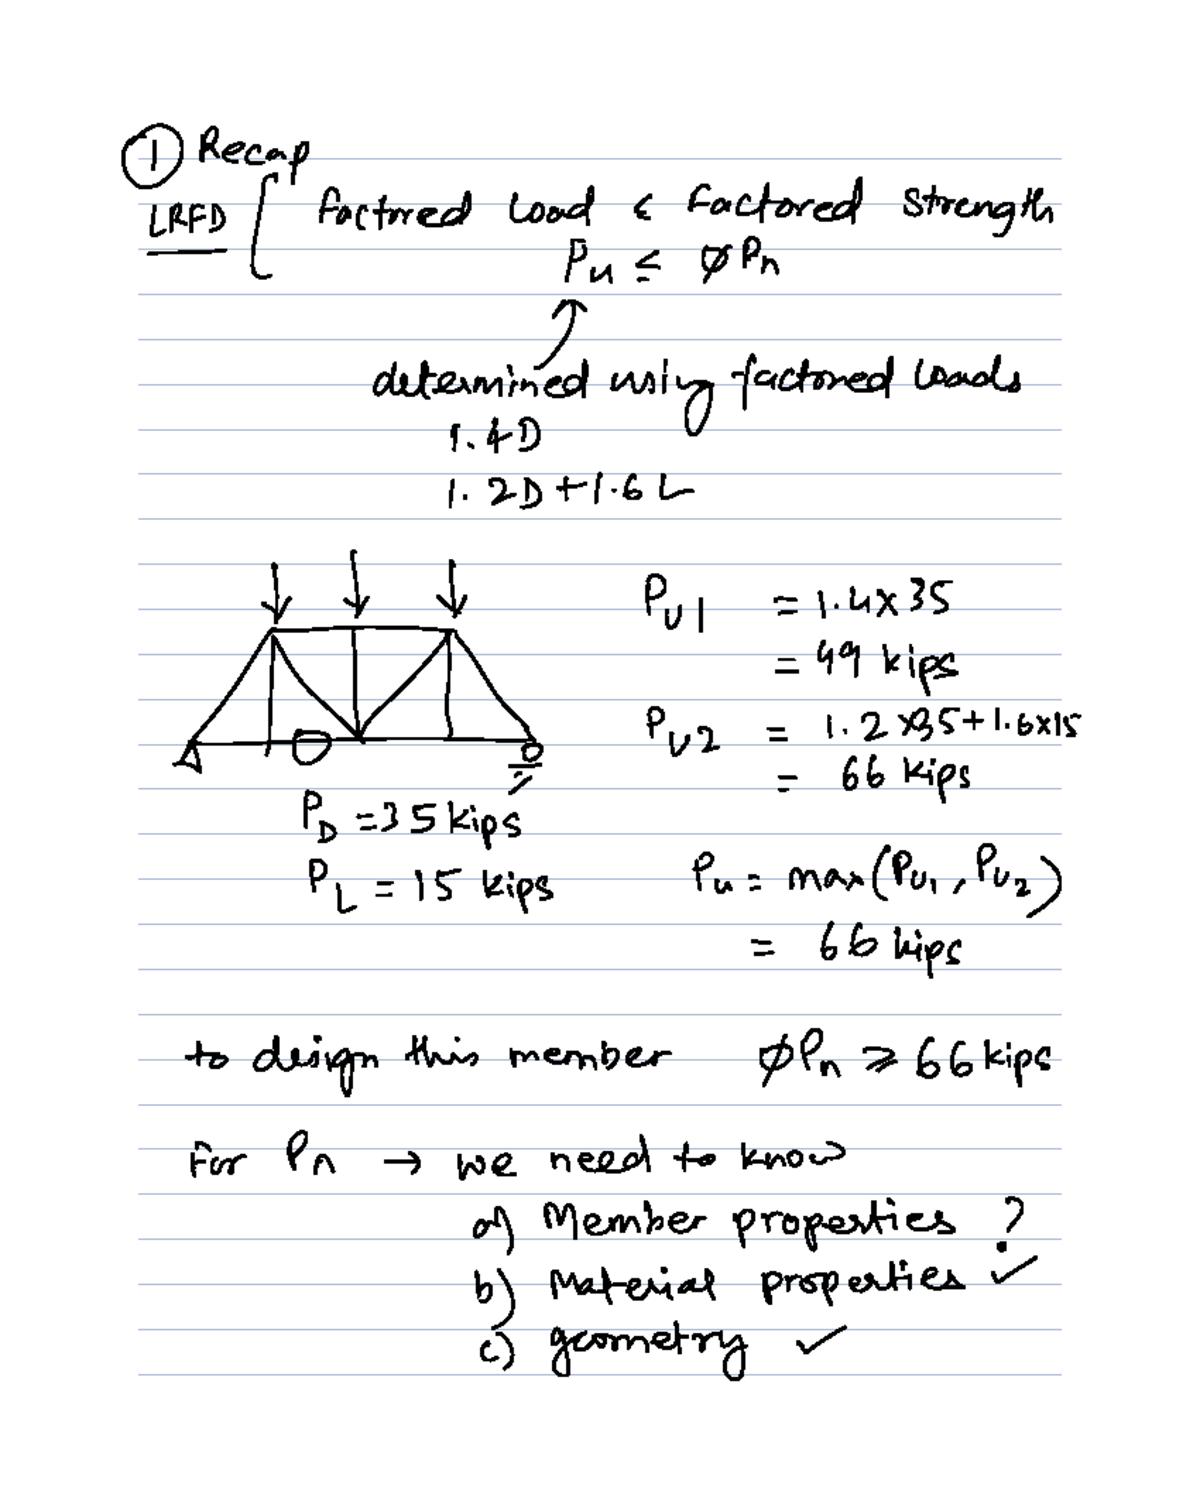 ① Recap
LRFD [ factored Load ≤ Factored Strength
Pu ≤ φ Pn
determined using factored loads
1.4D
1.2D + 1.6 L
PU1 = 1.4 x 35
= 49 kips
PU2 = 1.2 x35 + 1.6x15
= 66 kips
PD = 35 kips
PL = 15 kips
Pu = max (PU1, PU2)
= 66 kips
to design this member φPn ≥ 66 kips
For Pn → we need to know
a) Member properties ?
b) Material properties ✓
c) geometry ✓